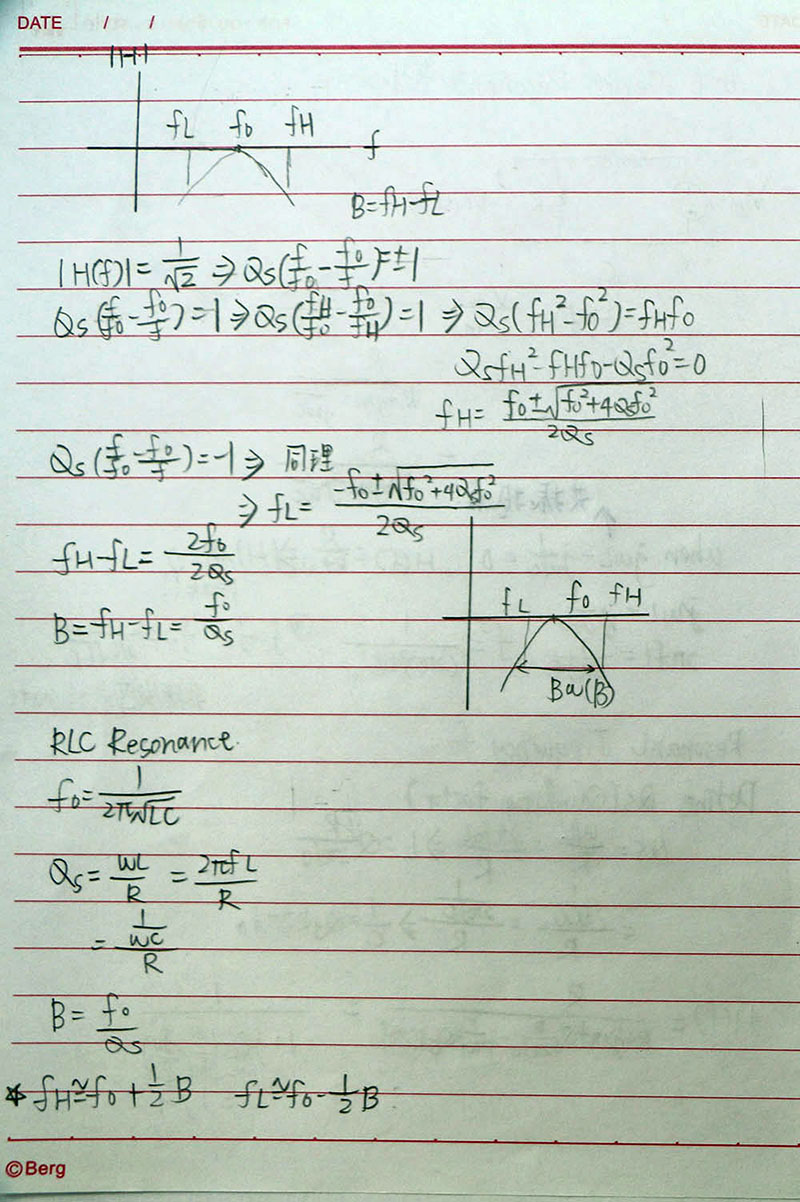 DATE / /
|H|
fL f0 fH f
B=fH-fL
|H(f)|=1/√2 ⇒ Qs(f/f0-f0/f)=±1
Qs(f/f0-f0/f)=1⇒Qs(fH/f0-f0/fH)=1 ⇒ Qs(fH²-f0²)=fHf0
QsfH²-fHf0-Qsf0²=0
fH=(f0±√(f0²+4Qsf0²))/2Qs
Qs(f/f0-f0/f)=-1⇒ 同理
⇒ fL=(-f0±√(f0²+4Qsf0²))/2Qs
fH-fL=2f0/2Qs
fL f0 fH
B=fH-fL=f0/Qs
BW(B)
RLC Resonance.
f0=1/2π√LC
Qs=WL/R=2πfL/R
=(1/WC)/R
B=f0/Qs
* fH≈f0+1/2B fL≈f0-1/2B
©Berg